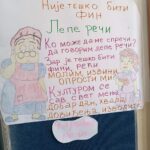 Није тешко бити
фин
Лепе речи
Ко може да ме спречи
да говорим лепе речи?
Зар је тешко бити
фини, рећи
МОЛИМ, ИЗВИНИ,
ОПРОСТИ МИ
КУЛТУРОМ СЕ
САВ СВЕТ МЕЊА
ДОБАР ДАН, ХВАЛА,
ДОВИЂЕЊА, ИЗВОЛИТЕ